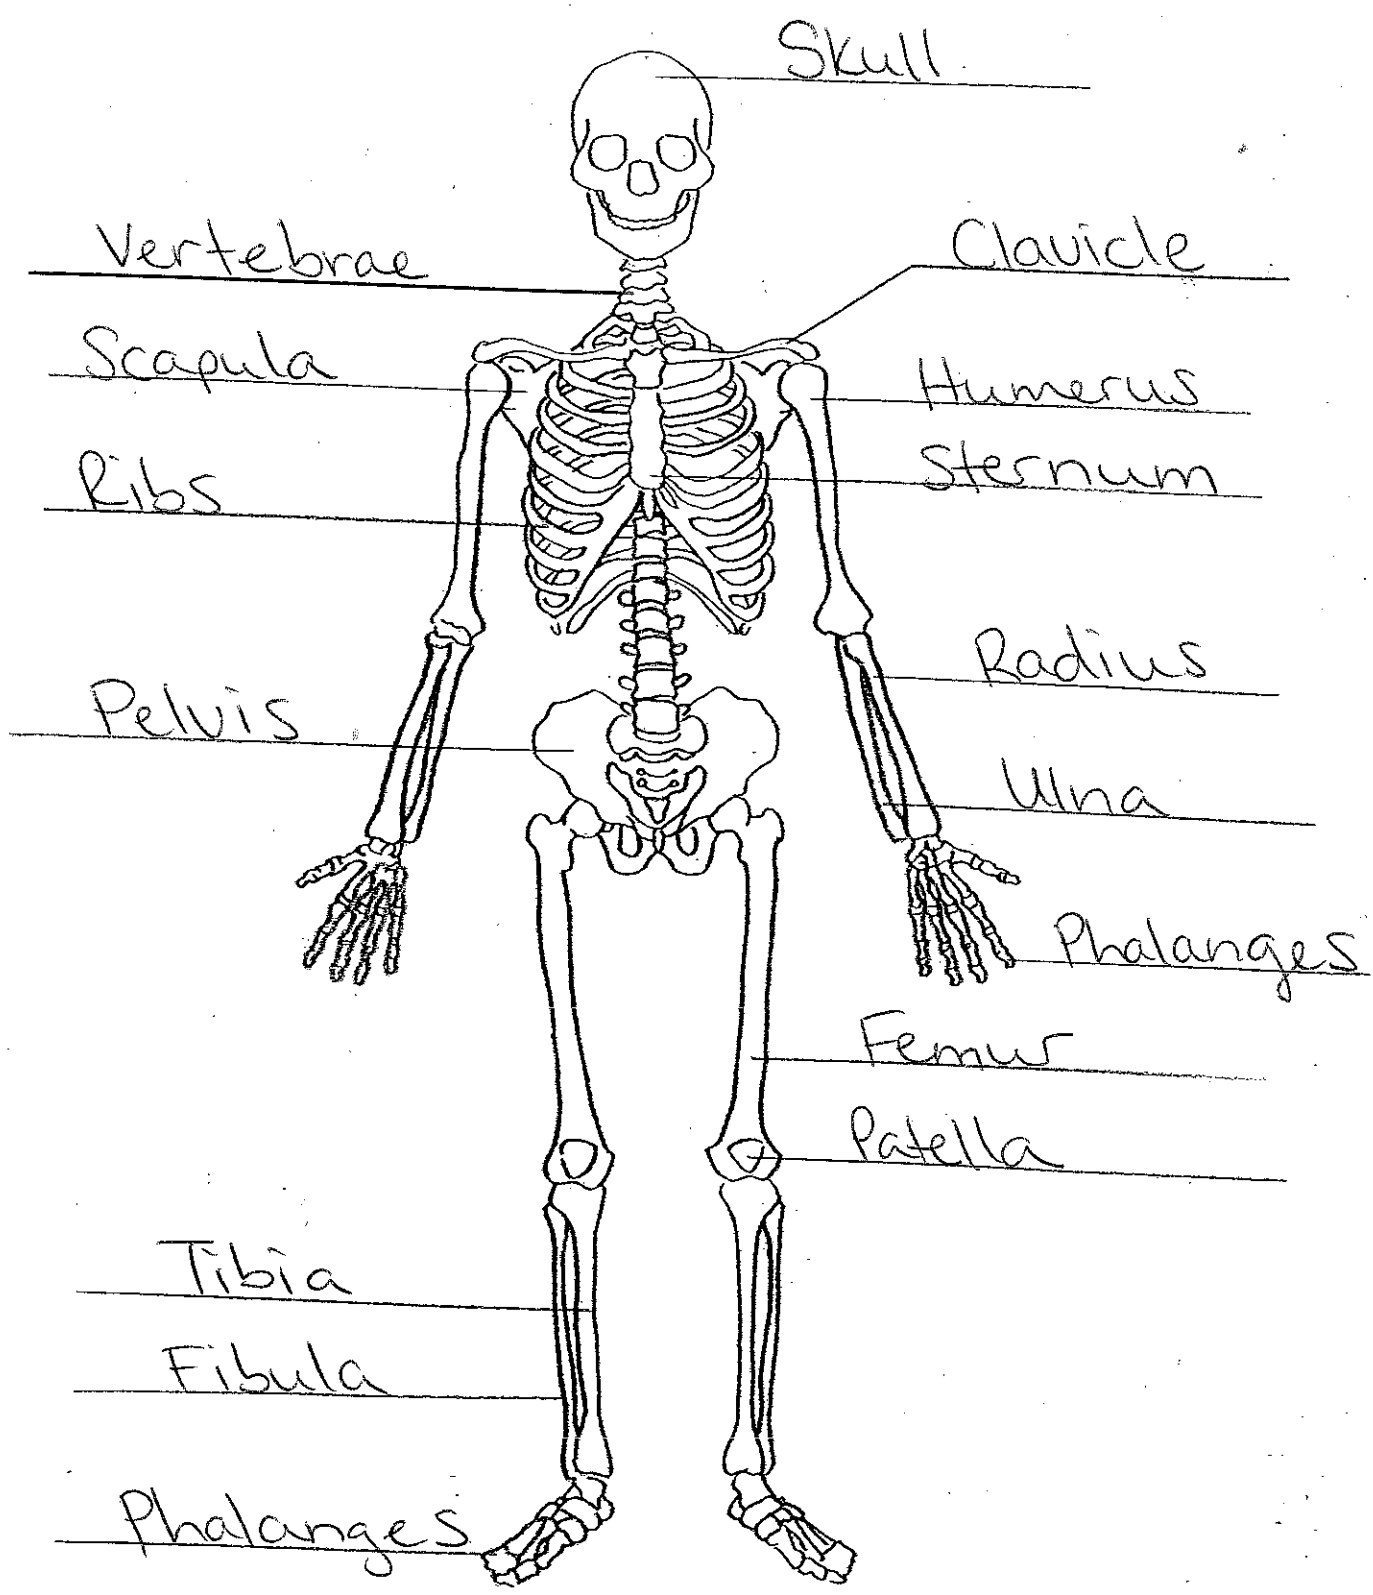 Skull
Vertebrae
Clavicle
Scapula
Humerus
Ribs
Sternum
Radius
Pelvis
Ulna
Phalanges
Femur
Patella
Tibia
Fibula
Phalanges